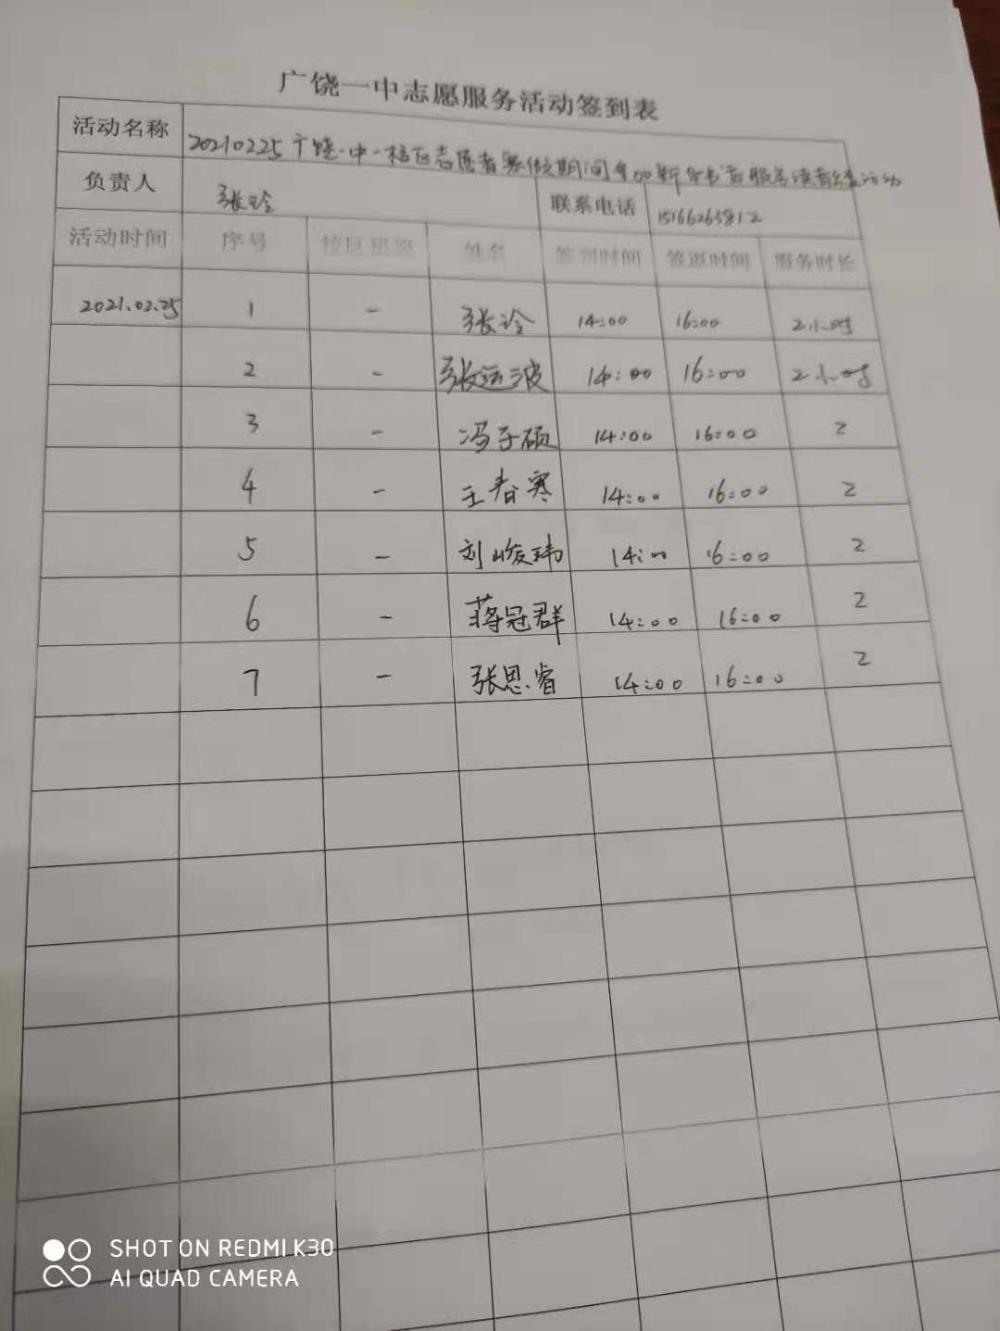 广饶一中志愿服务活动签到表
活动名称 20210225广饶一中一校区志愿者寒假期间 新华书店服务读者 活动
负责人 张玲 联系电话 15166263812
活动时间 序号 校区班级 姓名 签到时间 签退时间 服务时长
2021.02.25 1 - 张玲 14:00 16:00 2小时
2 - 张运波 14:00 16:00 2小时
3 - 冯子硕 14:00 16:00 2
4 - 王春寒 14:00 16:00 2
5 - 刘峻玮 14:00 16:00 2
6 - 蒋冠群 14:00 16:00 2
7 - 张思睿 14:00 16:00 2
SHOT ON REDMI K30
AI QUAD CAMERA